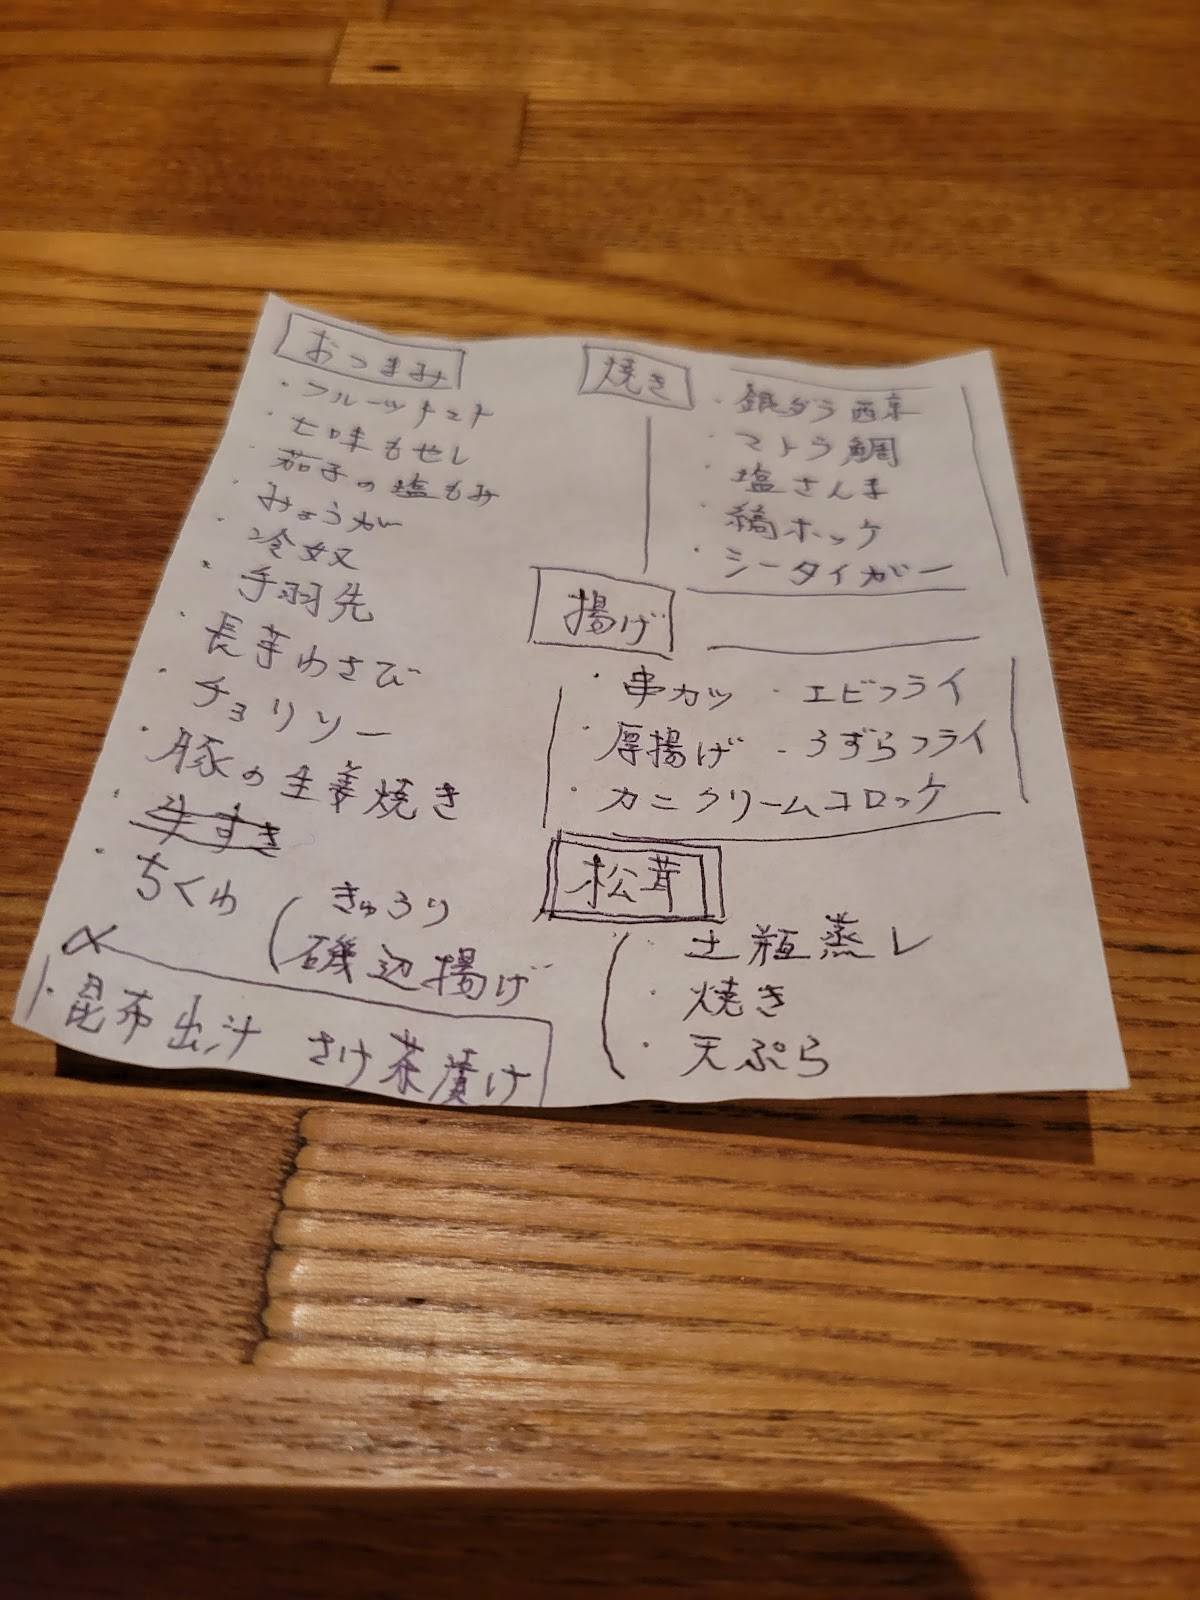 おつまみ
・フルーツトマト
・七味もやし
・茄子の塩もみ
・みょうが
・冷奴
・手羽先
・長芋わさび
・チョリソー
・豚の生姜焼き
・牛すき
・ちくわ
きゅうり
磯辺揚げ
・昆布出汁 さけ茶漬け
焼き
・銀ダラ西京
・マトウ鯛
・塩さんま
・縞ホッケ
・シータイガー
揚げ
・串カツ ・エビフライ
・厚揚げ ・うずらフライ
・カニクリームコロッケ
松茸
・土瓶蒸し
・焼き
・天ぷら